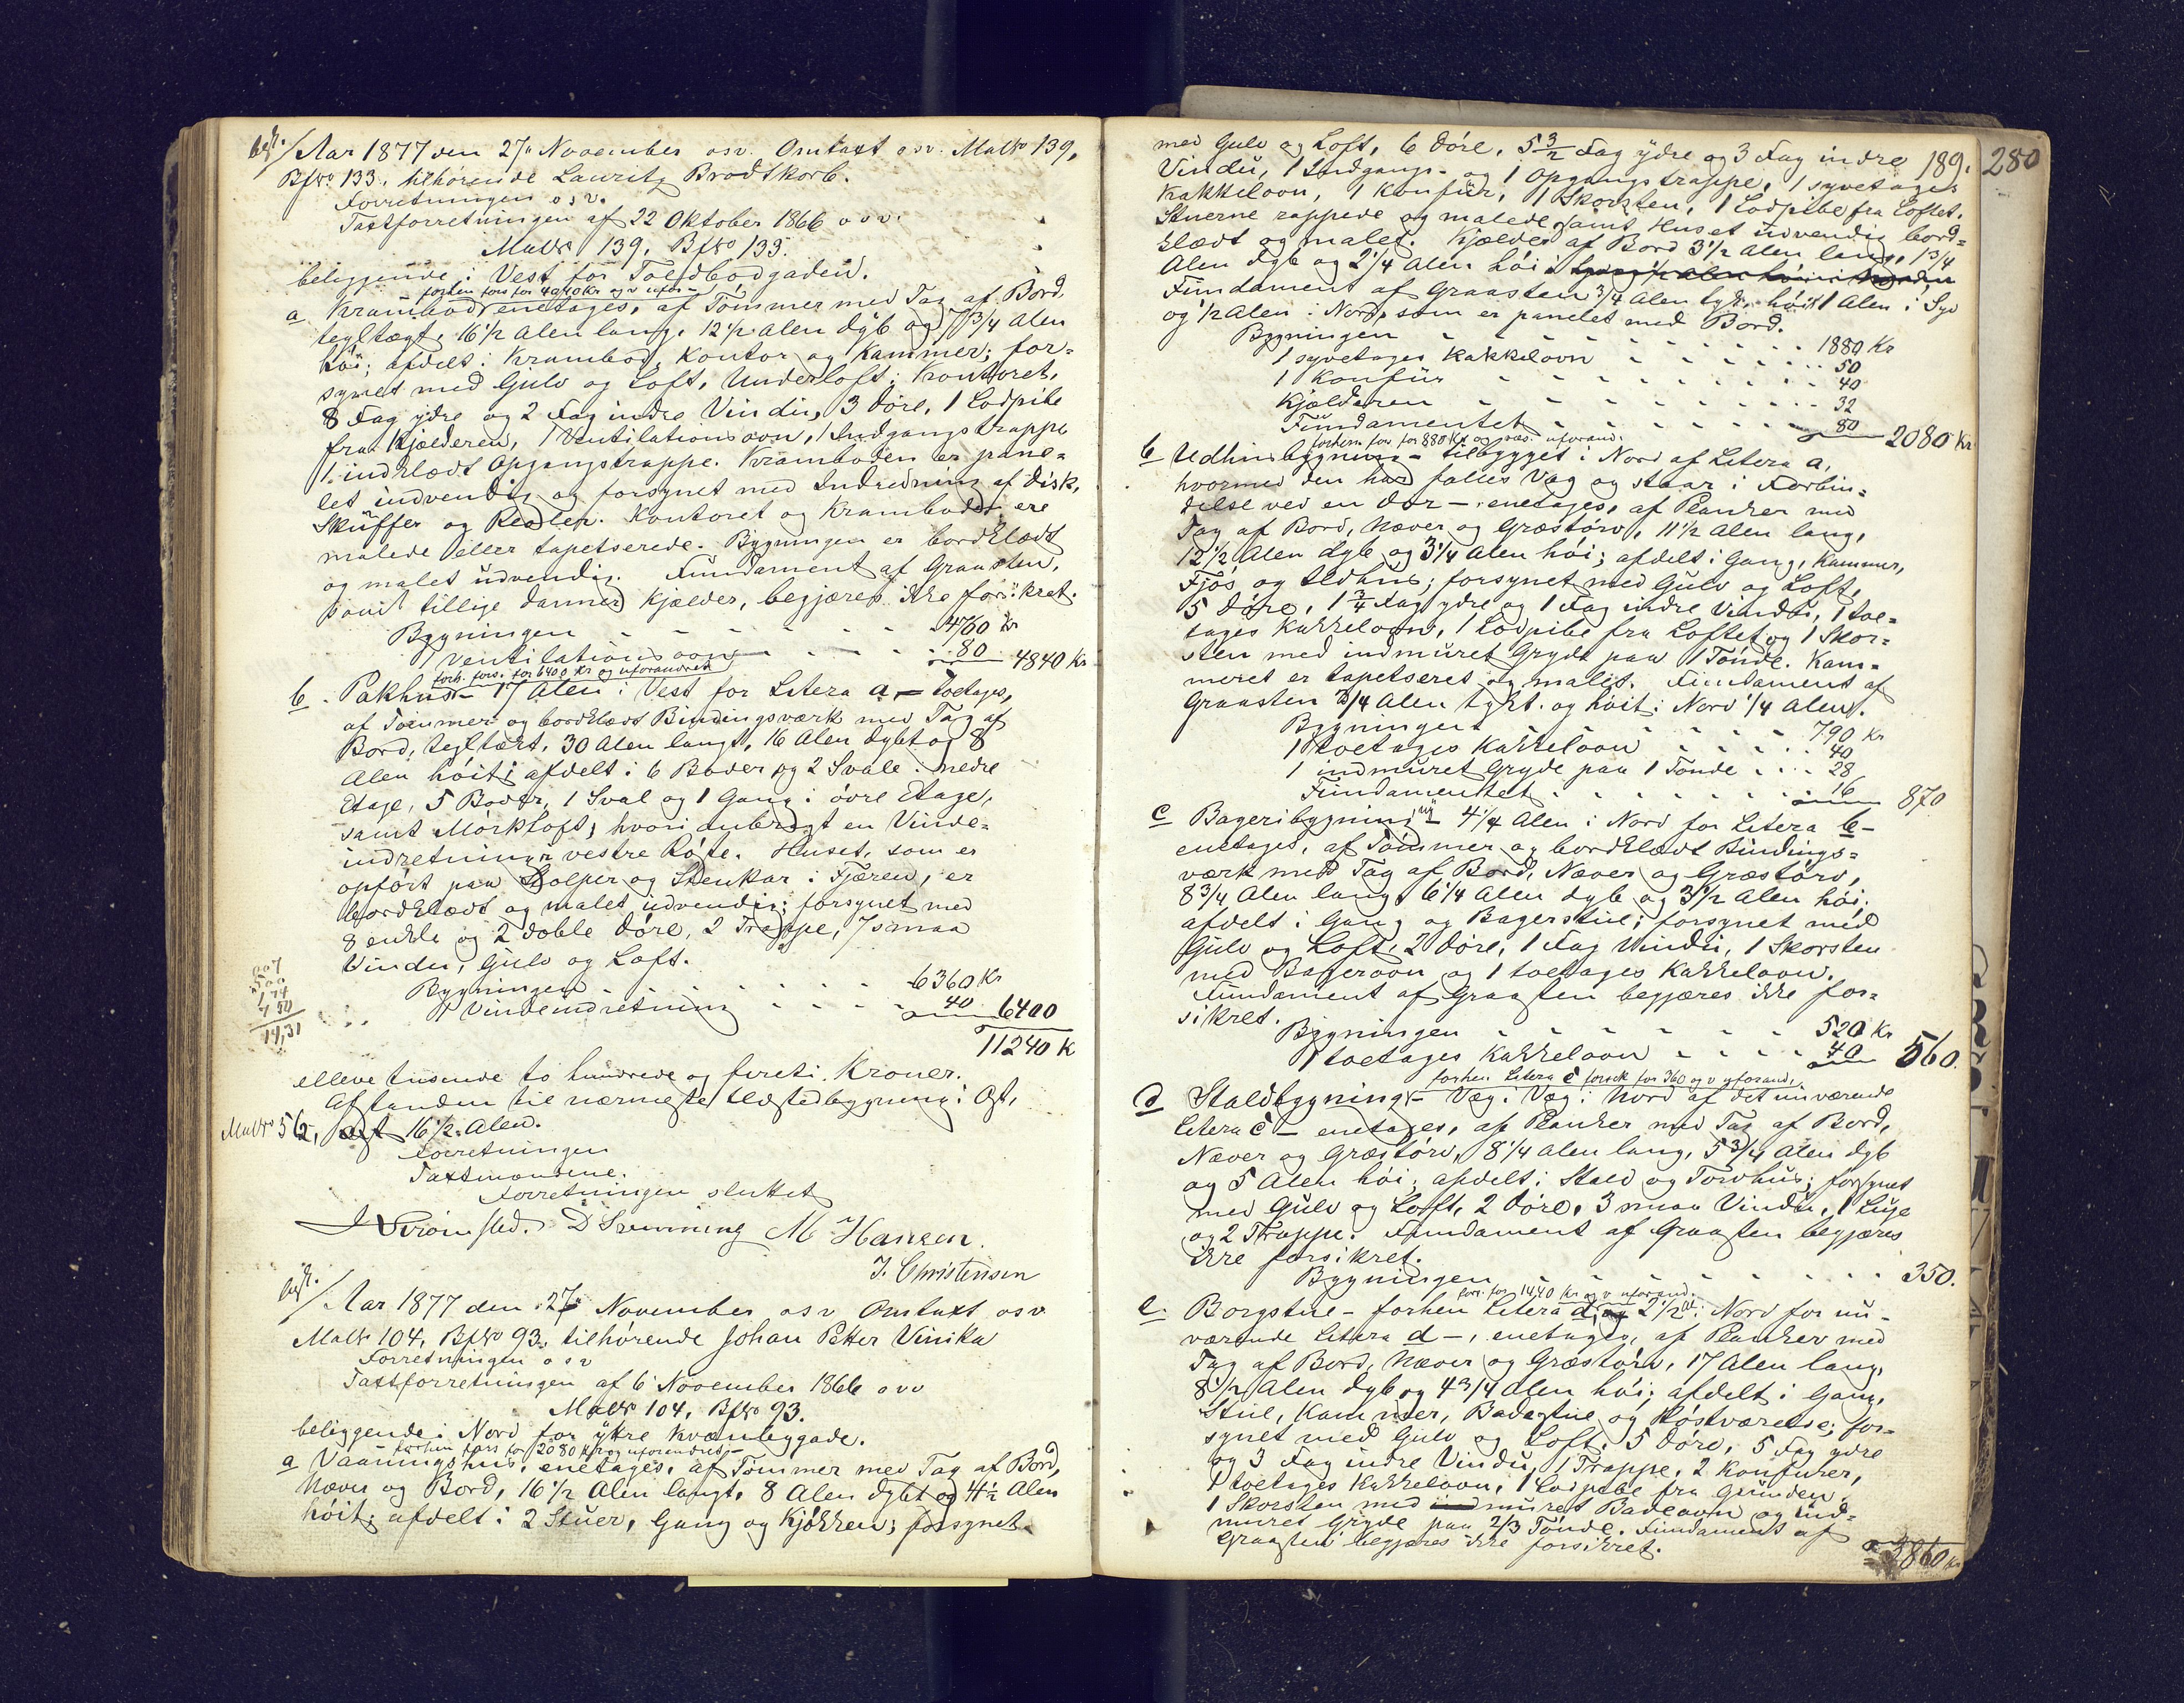 Aar 1877 den 27' November osv. Omtaxt osv. Matr 139,
Bfro 133. tilhørende Lauritz Brodtkorb.
Forretningen osv.
Taxtforretningen af 22 Oktober 1866 osv.
Matr 139. Bfro 133.
beliggende i Vest for Toldbodgaden.
a Krambod, enetages, af Tømmer med Tag af Bord
tegltægt, 16½ Alen lang, 12½ Alen dyb og 7¾ Alen
høi; afdelt i Krambod, Kontor og Kammer; for-
synet med Gulv og Loft, Underloft i Kontoret,
8 Fag ydre og 2 Fag indre Vindu, 3 Døre, 1 Lodpibe
fra Kjælderen, 1 Ventilationsovn, 1 Indgangstrappe
1 indklædt Opgangstrappe. Kramboden er pane-
let indvendig og forsynet med Indredning af Disk,
Skuffer og Reoler. Kontoret og Kramboden ere
malede eller tapetserede. Bygningen er bordklædt
og malet udvendig. Fundament af Graasten,
som tillige danner Kjælder, begjæres ikke forsikret.
Bygningen - - - 4760 Kr
1 Ventilationsovn - - - 80 4840 Kr
forh. fors. for 6400 Kr og uforandret
b. Pakhus - 17 Alen i Vest for Litera a, - toetages,
af Tømmer og bordklædt Bindingsværk med Tag af
Bord, tegltækt, 30 Alen langt, 16 Alen dybt og 8
Alen høit; afdelt i 6 Boder og 2 Svale i nedre
Etage, 5 Boder, 1 Sval og 1 Gang i øvre Etage,
samt Mørkloft, hvori anbragt en Vinde-
indretning i vestre Røste. Huset, som er
opført paa Stolper og Stenkar i Fjæren, er
bordklædt og malet udvendig; forsynet med
8 enkle og 2 doble Døre, 2 Trappe, 7 smaa
Vindu, Gulv og Loft.
Bygningen - - - 6360 Kr
1 Vindeindretning - - - 40 6400
11240 K
elleve tusende to hundrede og fireti Kroner.
Afstanden til nærmeste Ildstedbygning i Øst,
Matr 562, 16½ Alen.
Forretningen
Taxtmændene.
Forretningen sluttet
M Hansen.
J. Christensen
Aar 1877 den 27' November osv Omtaxt osv
Matr 104, Bfro 93, tilhørende Johan Petter Vinika
Forretningen osv
Taxtforretningen af 6 November 1866 osv
Matr 104, Bfro 93.
beliggende i Nord for ytre Kvænbygade.
forhen fors for 2080 Kr og uforandret -
a Vaaningshus, enetages, af Tømmer med Tag af Bord,
Næver og Bord, 16½ Alen langt, 8 Alen dybt og 4½ Alen
høit; afdelt i 2 Stuer, Gang og Kjøkken; forsynet
189. 280
med Gulv og Loft, 6 Døre, 5 3/2 Fag ydre og 3 Fag indre
Vindu, 1 Indgangs- og 1 Opgangstrappe, 1 syvetages
Kakkelovn, 1 Konfur, 1 Skorsten, 1 Lodpibe fra Loftet.
Stuerne rappede og malede samt Huset udvendig bord-
klædt og malet. Kjælder af Bord 3½ Alen lang, 1¾
Alen dyb og 2¼ Alen høi
Fundament af Graasten ¾ Alen tyk, høit 1 Alen i Syd
og ½ Alen i Nord, som er panelet med Bord.
Bygningen - - - 1880 Kr
1 syvetages Kakkelovn - - - 50
1 Konfur - - - 40
Kjælderen - - - 32
Fundamentet - - - 80 2080 Kr
b Udhusbygning - tilbygget i Nord af Litera a,
hvormed den har fælles Væg og staar i Forbin-
delse ved en Dør -, enetages, af Planker med
Tag af Bord, Næver og Græstørv, 11½ Alen lang,
12½ Alen dyb og 3¼ Alen høi; afdelt i Gang, Kammer,
Fjøs og Ildhus; forsynet med Gulv og Loft,
5 Døre, 1 ¾ Fag ydre og 1 Fag indre Vindu, 1 toe-
tages Kakkelovn, 1 Lodpibe fra Loftet og 1 Skor-
sten med indmuret Gryde paa 1 Tønde. Kam-
meret er tapetseret og malet. Fundament af
Graasten ¾ Alen tykt og høit i Nord ¼ Alen.
Bygningen - - - 790 Kr
1 toetages Kakkelovn - - - 40
1 indmuret Gryde paa 1 Tønde - - - 28
Fundamentet - - - 16 870
c Bageribygning ny - 4¼ Alen i Nord for Litera b -
enetages, af Tømmer og bordklædt Bindings-
værk med Tag af Bord, Næver og Græstørv,
8¾ Alen lang, 6¼ Alen dyb og 3½ Alen høi;
afdelt i Gang og Bagerstue; forsynet med
Gulv og Loft, 2 Døre, 1 Fag Vindu, 1 Skorsten
med Bagerovn og 1 toetages Kakkelovn.
Fundament af Graasten begjæres ikke for-
sikret.
Bygningen - - - 520 Kr
1 toetages Kakkelovn - - - 40 560.
forhen Litera c forsik for 360 og v uforand.
d Staldbygning - Væg i Væg i Nord af det nuværende
Litera c - enetages, af Planker med Tag af Bord,
Næver og Græstørv, 8¼ Alen lang, 5¾ Alen dyb
og 5 Alen høi; afdelt i Stald og Torvhus; forsynet
med Gulv og Loft, 2 Døre, 3 smaa Vindu, 1 Luge
og 2 Trappe. Fundament af Graasten begjæres
ikke forsikret.
Bygningen - - - 350.
fors. for 1440 Kr og v uforand.
e. Borgstue - forhen Litera d, 2½ Al. i Nord for nu-
værende Litera d -, enetages, af Planker med
Tag af Bord, Næver og Græstørv, 17 Alen lang,
8½ Alen dyb og 4¾ Alen høi; afdelt i Gang,
Stue, Kammer, Badestue og Høstværelse; for-
synet med Gulv og Loft, 5 Døre, 5 Fag ydre
og 3 Fag indre Vindu, 1 Trappe, 2 Konfurer,
1 toetages Kakkelovn, 1 Lodpibe fra Grunden,
1 Skorsten med muret Badeovn og ind-
muret Gryde paa 2/3 Tønde. Fundament af
Graasten begjæres ikke forsikret.
3860 Kr